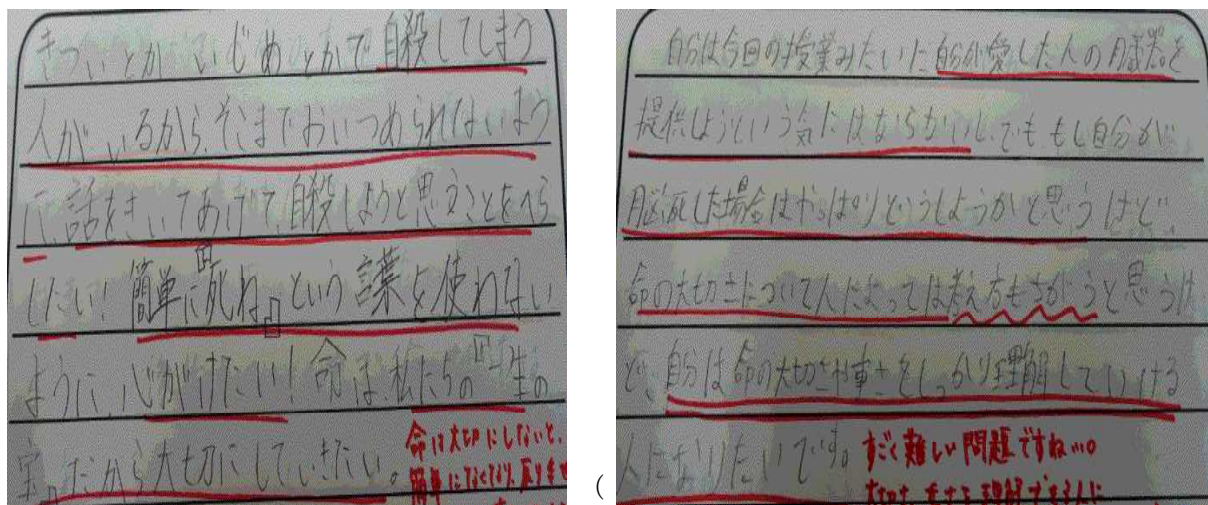 きついとかいじめとかで自殺してしまう
人がいるから、そこまでおいつめられないよう
に、話をきいてあげて、自殺しようと思うことをへら
したい！簡単に『死ね』という言葉を使わない
ように、心がけたい！命は、私たちの『一生の
宝』。だから大切にしていきたい。
命は大切にしないと、
簡単になくなり、
(
自分は今回の授業みたいに自分が愛した人の臓器を
提供しようという気にはならないし、でも、もし自分が
脳死した場合はやっぱりどうしようかと思うけど
命の大切さについて人によっては考え方もちがうと思うけ
ど、自分は命の大切さや重さをしっかり理解していける
人になりたいです。
すごく難しい問題ですね…。
大切さ、重さを理解できる人に